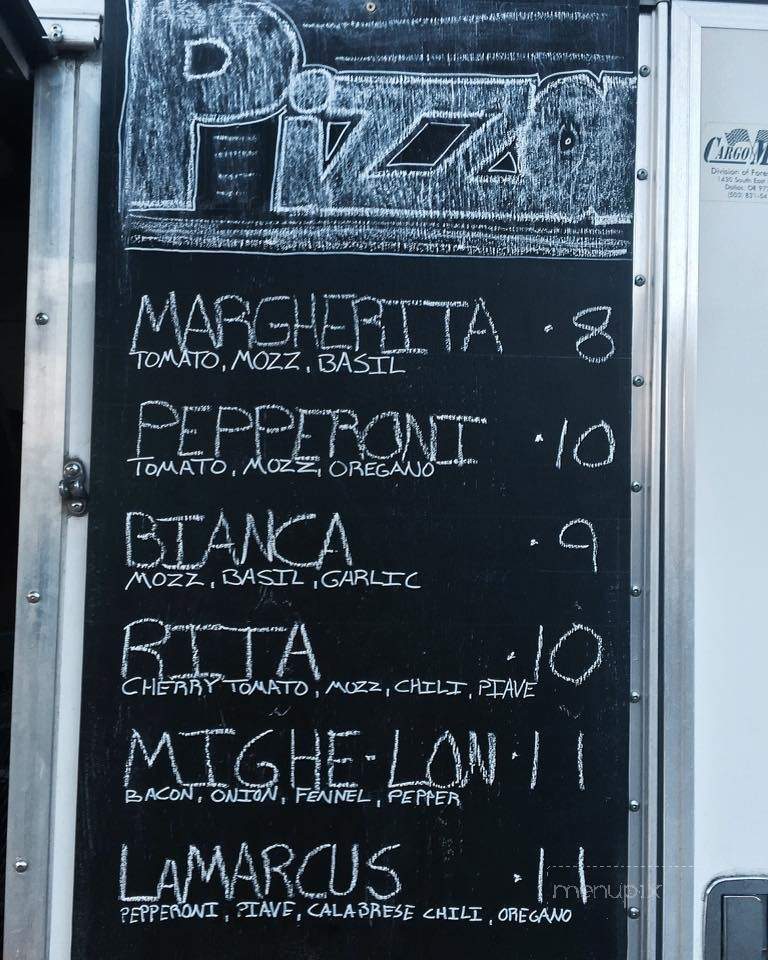 Pizza
MARGHERITA · 8
TOMATO, MOZZ, BASIL
PEPPERONI · 10
TOMATO, MOZZ, OREGANO
BIANCA · 9
MOZZ, BASIL, GARLIC
RITA · 10
CHERRY TOMATO, MOZZ, CHILI, PIAVE
MIGHE-LON · 11
BACON, ONION, FENNEL, PEPPER
LAMARCUS · 11
PEPPERONI, PIAVE, CALABRESE CHILI, OREGANO
menupix
CARGO M
Division of Fores
1430 South East
Dallas, OR 97
(503) 831-54